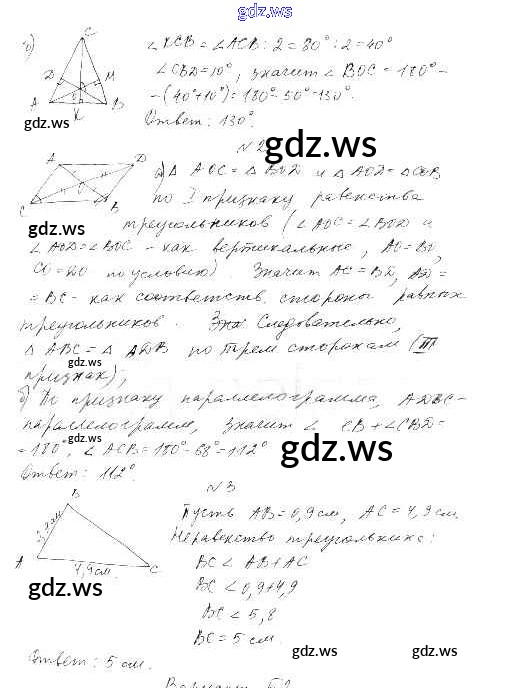 gdz.ws
б) ∠KCB = ∠ACB : 2 = 80° : 2 = 40°
∠CBD = 10°, значит ∠BOC = 180° -
- (40° + 10°) = 180° - 50° = 130°.
Ответ: 130°.
C
D
M
A
K
B
gdz.ws
gdz.ws
N 2
A
D
O
C
B
gdz.ws
а) △ AOC = △ BOD и △ AOD = △ COB
по I признаку равенства
треугольников (∠AOC = ∠BOD и
∠AOD = ∠BOC - как вертикальные, AO = BO,
CO = DO по условию). Значит AC = BD, AD =
= BC - как соответств. стороны равных
треугольников. Следовательно,
△ ABC = △ ADB по трем сторонам (III
gdz.ws
признак);
б) По признаку параллелограмма, ADBC -
параллелограмм, значит ∠ CB + ∠CBD =
gdz.ws
= 180°, ∠ ACB = 180° - 68° = 112°
gdz.ws
Ответ: 112°
N 3
B
A
C
4,9 см.
gdz.ws
Пусть AB = 0,9 см, AC = 4,9 см.
Неравенство треугольника:
BC < AB + AC
BC < 0,9 + 4,9
BC < 5,8
BC = 5 см.
gdz.ws
gdz.ws
Ответ: 5 см.
Вариант Б2